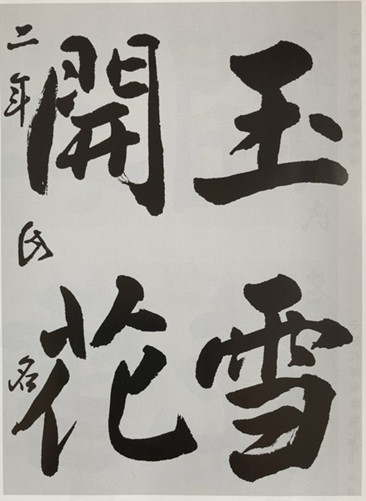 玉雪
開花
二年 氏名